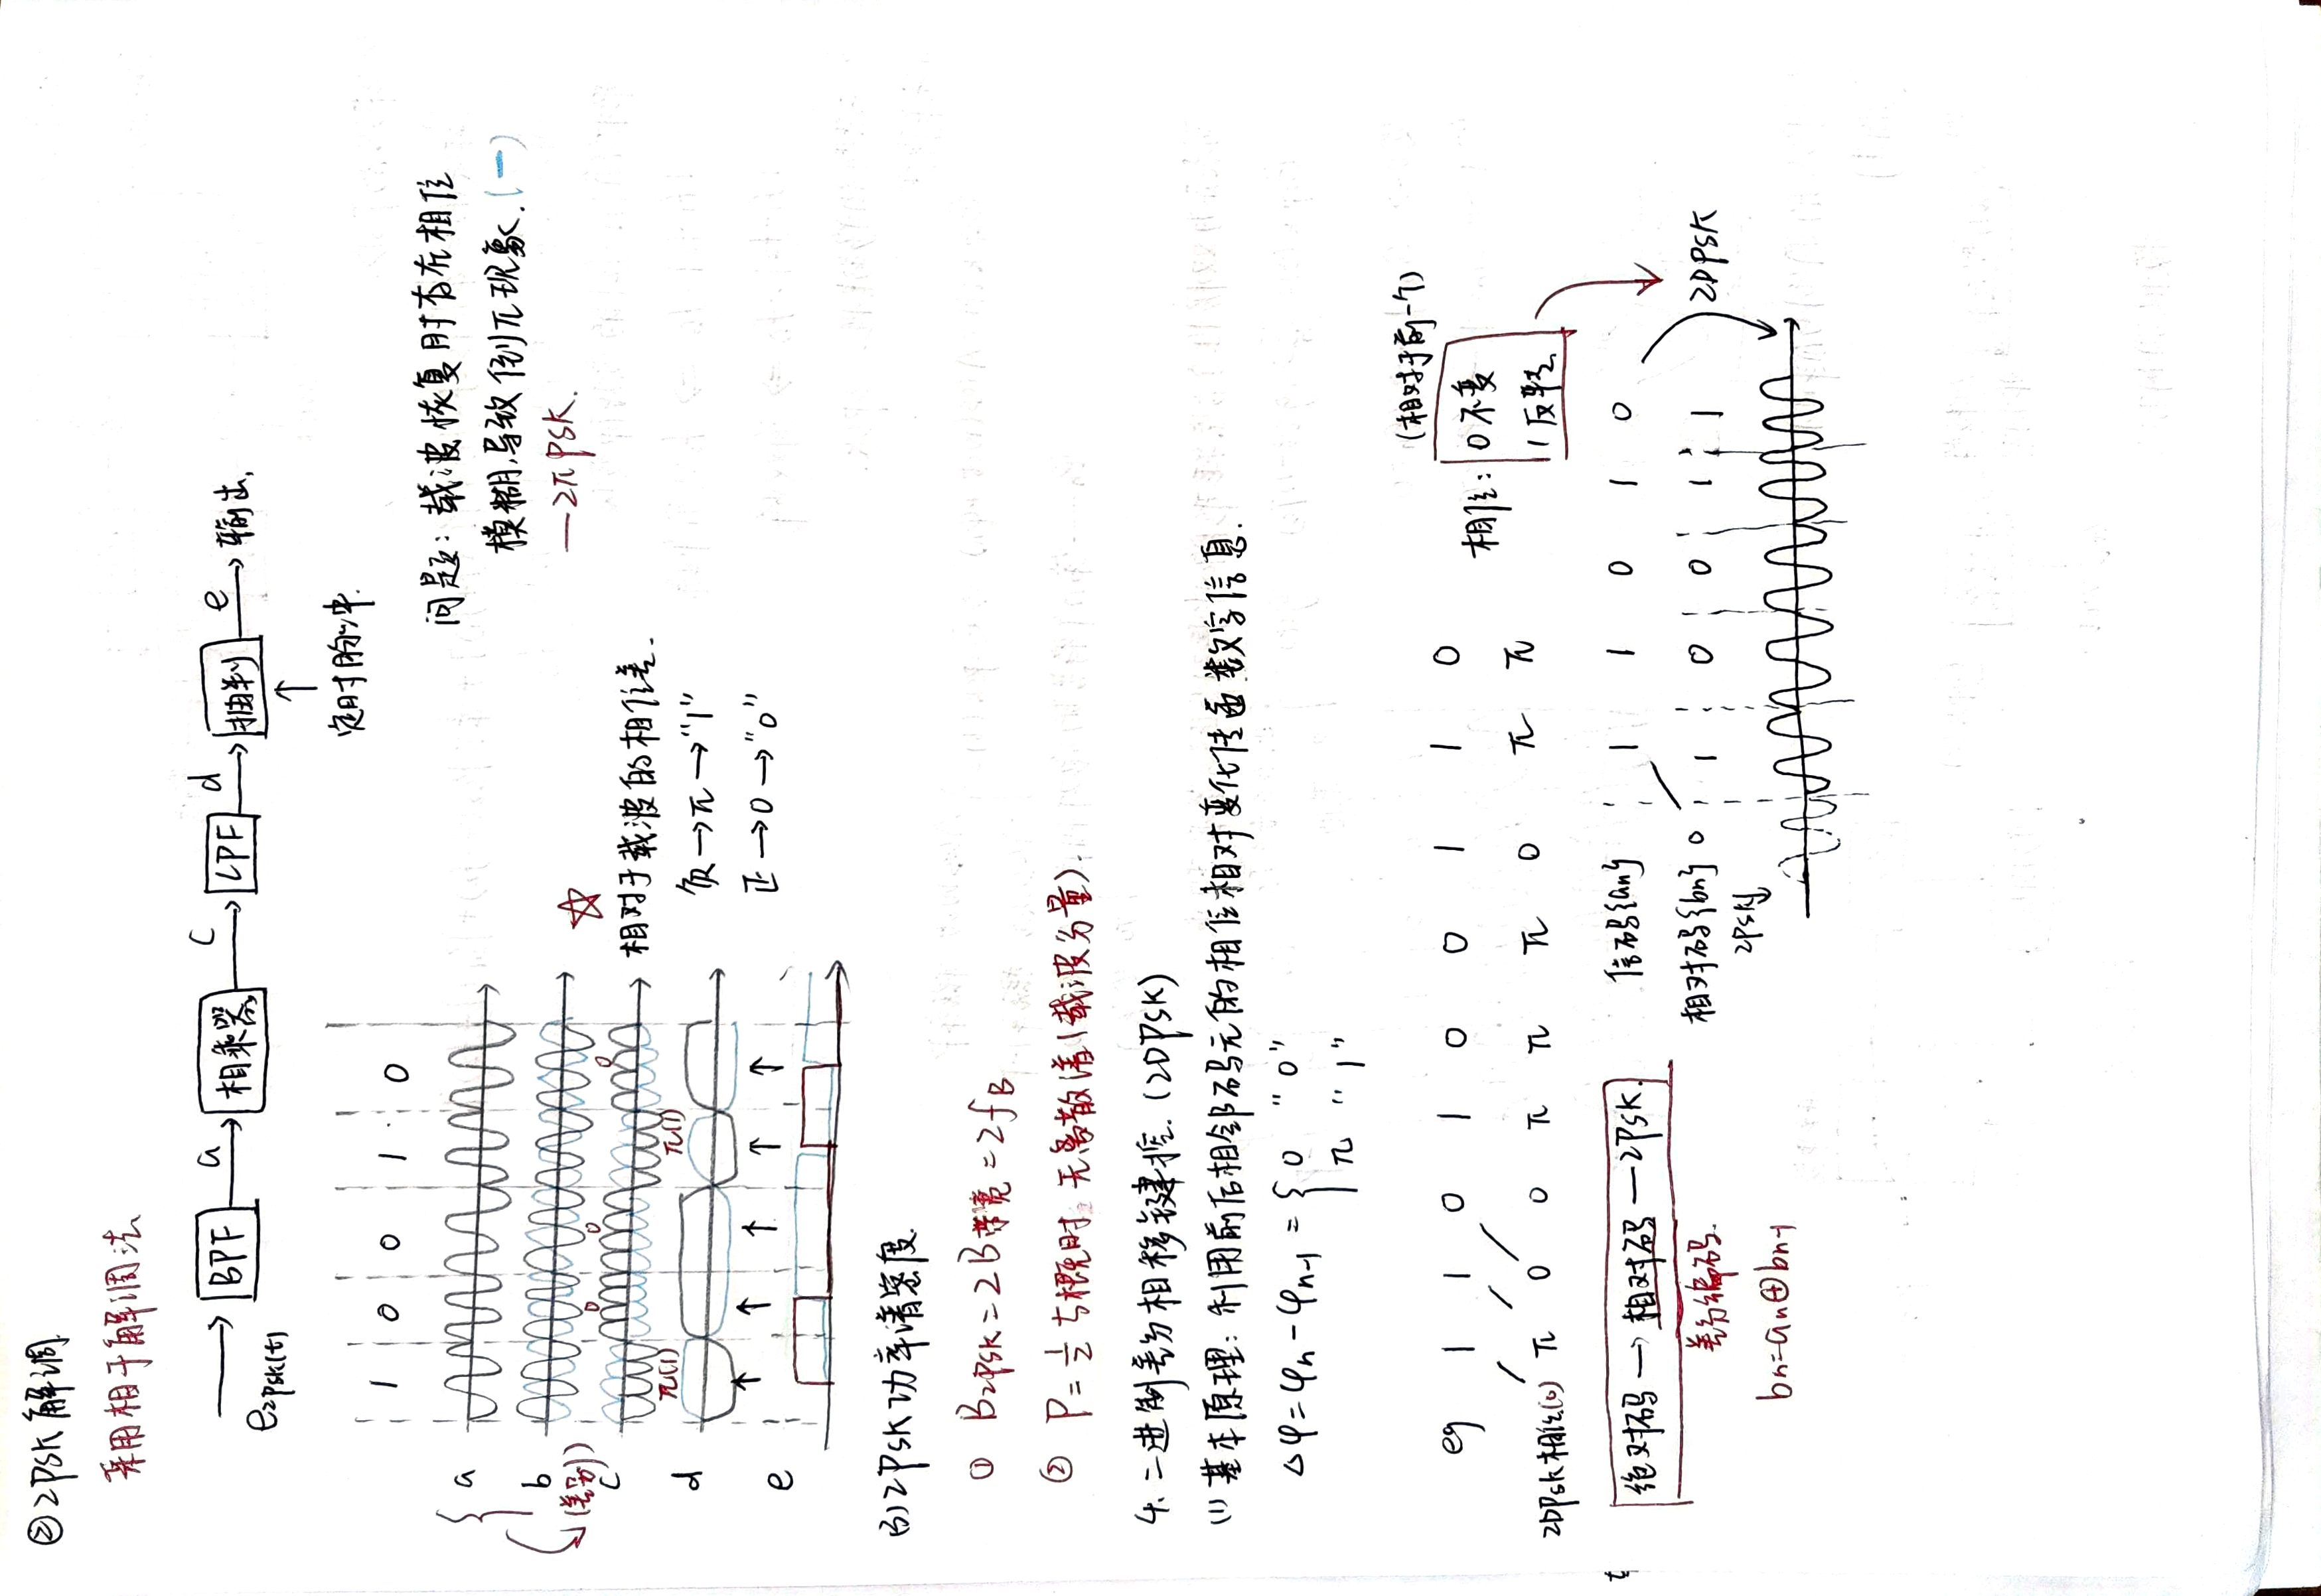 ② 2PSK解调
采用相干解调法
→ BPF a→ 相乘器 c→ LPF d→ 抽判 e→ 输出
e2psk(t)
↑
定时脉冲
1 0 0 1 0
a
b
(差分)
c
d
e
π(1) 0 0 π(1) 0
问题: 载波恢复时存在相位
模糊,导致倒π现象.(一)
—2πPSK.
☆
相对于载波的相位差.
负→π→"1"
正→0→"0"
(3) 2PSK功率谱密度
① B2PSK=2B带宽=2fB
② P=1/2 与概时 无离散谱(载波分量).
4. 二进制差分相移键控. (2DPSK)
(1) 基本原理: 利用前后相邻码元的相位相对变化传递数字信息.
Δφ=φn-φn-1={ 0 "0"
π "1"
(相对于前一个)
相位: 0不变
1反转
eg 1 1 0 1 0 0 1 1 0
2DPSK相位(0) π 0 0 π π π 0 π π
绝对码→相对码—2PSK.
差分编码.
bn=an⊕bn-1
信码{an} 1 1 0 1 0
相对码{bn} 0 1 0 0 1 1
2PSK
2DPSK